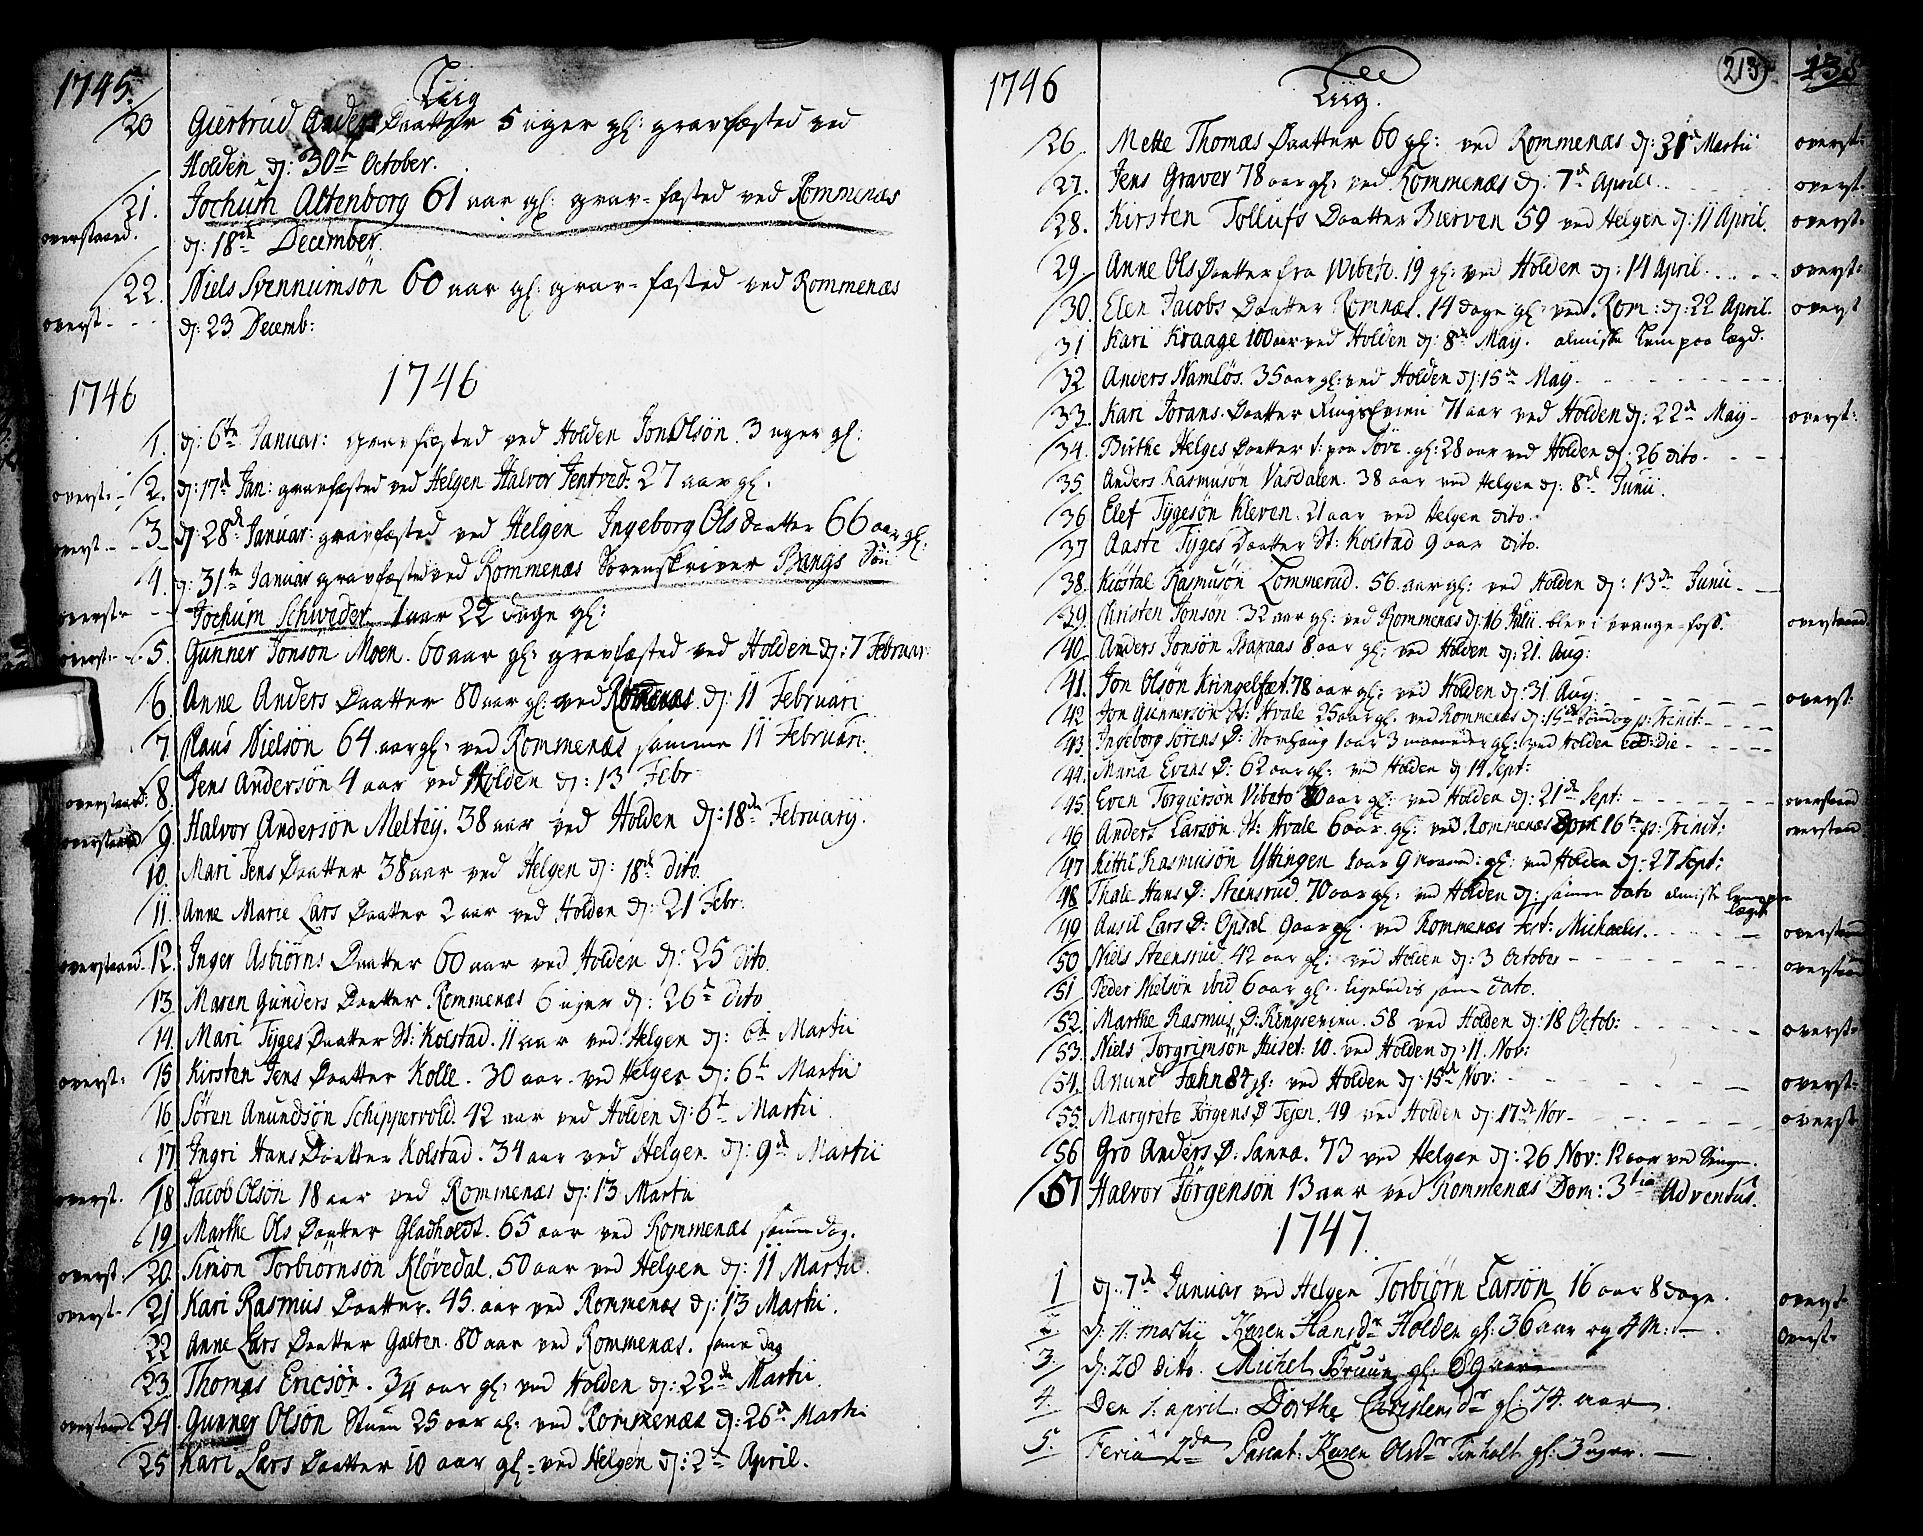 1745. Liig
20 Giertrud Anders Daatter 5 uger gl: gravfæsted ved
Holden d: 30te October.
21. Jochum Altenborg 61 aar gl: grav=fæsted ved Rommenæs
overstaaed. d: 18de December.
22. Niels Svennumsön 60 aar gl: grav=fæsted ved Rommenæs
overst- d: 23 Decemb:
1746 1746
1. d: 6te Januar: gravfæsted ved Holden Jon Olsön 3 uger gl:
overst- 2. d: 17de Jan: gravfæsted ved Helgen Halvor Jentved. 27 aar gl.
overst- 3 d: 28de Januar: gravfæsted ved Helgen Ingeborg Ols daatter 66 aar gl:
4. d: 31te Januar gravfæsted ved Rommenæs Sorenskriver Bangs Sön
overst- Jochum Schweder 1 aar 22 dage gl:
overst- 5. Gunner Jonson Moen. 60 aar gl: gravfæsted ved Holden d: 7 Februar
6. Anne Anders Daatter 80 aar gl: ved Romenæs d: 11 Februari
7. Claus Nielsön 64 aar gl: ved Rommenæs samme 11 Februari.
overstaaed: 8. Jens Andersön 4 aar ved Holden d: 13 Febr
overstaaed 9. Halvor Andersön Meltey. 38 aar ved Holden d: 18de February.
10. Mari Jens Daatter 38 aar ved Helgen d: 18de dito.
11. Anne Marie Lars Daatter 2 aar ved Holden d: 21 Febr.
overstaaed. 12. Inger Asbiörns Daatter 60 aar ved Holden d: 25 dito.
13. Maren Gunders Daatter Rommenæs 6 uger d: 26de dito
14. Mari Tÿges Daatter St: Kolstad. 11 aar ved Helgen d: 6te Martii
overst: 15 Kirsten Jens Daatter Kolle. 30 aar ved Helgen d: 6te Martii
16 Sören Anundsön Schippervold. 42 aar ved Holden d: 6te Martii.
17 Ingri Hans Daatter Kolstad. 34 aar ved Helgen d: 9de Martii
overst. 18 Jacob Olsön 18 aar ved Rommenæs d: 13 Martii
19 Marthe Ols Daatter Gladholdt. 65 aar ved Rommenæs samme dag.
overst: 20. Simon Torbiörnsön Klövedal. 50 aar ved Helgen d: 11 Martii.
overst- 21 Kari Rasmus Daatter. 45. aar ved Rommenæs d: 13 Martii.
22 Anne Lars Daatter Gaeten. 80 aar ved Rommenæs. samme dag
23. Thomas Ericsön. 34 aar gl: ved Holden d: 22de Martii.
overstaaed 24. Gunner Olsön Stuen 25 aar gl: ved Rommenæs d: 26de Martii
25 Kari Lars Daatter 10 aar gl: ved Helgen d: 2de April.
1746 Liig. 213 138
26. Mette Thomæs Daatter 60 gl: ved Rommenæs d: 31te Martii overst:
27. Jens Graver 78 aar gl: ved Rommenæs d: 7de Aprill. overst:
28. Kirsten Tollufs Daatter Bierven 59 ved Helgen d: 11 April. overst:
29. Anne Ols Daatter fra Wibeto. 19 gl: ved Holden d: 14 April. overst:
30. Elen Jacobs Daatter Romnæs. 14 dage gl: ved Rom: d: 22 April. overst
31 Kari Kraage 100 aar ved Holden d: 8de May. almisse lem paa lægd.
32 Anders Namlös. 35 aar gl: ved Holden d: 15de May
33. Kari Jorans Daatter Ringsevien 71 aar ved Holden d: 22de May overst:
34. Birthe Helges Daatter paa Söve. gl: 28 aar ved Holden d: 26 dito
35. Anders Rasmusön Vasdalen. 38 aar ved Helgen d: 8de Junii.
36 Elef Tÿgesön Kleven. 21 aar ved Helgen dito
37 Aaste Tÿges Daatter St: Kolstad 9 aar dito.
38. Kiöstel Rasmusön Lommerud. 56. aar gl: ved Holden d: 13de Junii
39 Christen Jonson 32 aar gl: ved Rommenæs d: 16 Julii. blev i vrange-foss. overstaaed
40. Anders Jonsön Baxaas 8 aar gl: ved Holden d: 21. Aug:
41. Jon Olsön Kringelfæt. 78 aar gl: ved Holden d: 31 Aug: overst:
42 Jon Gunnersön St: Hvale 25 aar gl: ved Rommenæs d: 15de Söndag p: Trinit
43 Ingeborg Sörens D: Storhaug 1 aar 3 maaneder gl: ved Holden Eod: Die
44. Maria Evens D: 62 aar gl: ved Holden d 14 Sept:
45. Even Torgiersön Vibeto 80 aar gl: ved Holden d: 21de Sept: overstaaed
46 Anders Larsön St: Hvale 6 aar gl: ved Rommenæs Dom 16te p: Trinit: overstaaed
47 Kittil Rasmusön Yttingen 1 aar 9 maaned: gl: ved Holden d: 27 Sept:
48 Thale Hans D: Steensrud. 70 aar gl: ved Holden d: samme dato almisse lem paa
lægd.
49 Aasil Lars D: Opdal 9 aar gl: ved Rommenæs Fest: Michaelis. overstaaed
50 Niels Steensrud. 42 aar gl: ved Holden d: 3 October overstaaed
51 Peder Nielsön ibid 6 aar gl: ligeledes same dato.
52. Marthe Rasmus D: Ringsevien. 58 ved Holden d: 18 Octob: overst:
53. Niels Torgrimson Huset. 10. ved Holden d: 11. Nov:
54. Anund Fæhn 84 gl: ved Holden d: 15de Nov: overst:
55. Margrete Jörgens D Tejen. 49 ved Holden d: 17de Nov overst
56 Gro Anders D: Sanna. 73 ved Helgen d: 26 Nov: 12 aar ved Sengen.
57 Halvor Jörgensön 13 aar ved Rommenæs Dom: 3tia Adventus.
1747.
1 d: 7de Januar ved Helgen Torbiörn Larsön 16 aar 8 dage. overst-
2 d: 11. martii Karen Hansdr Holden gl: 36 aar og 4 M: overst-
3 d: 28 dito. Michel Bruun gl: 89 aar
4. Den 1. april. Dorthe Christensdr gl: 74. aar.
5. Feria 2da Pascat: Karen Olsdr Tinholt gl: 3 uger.